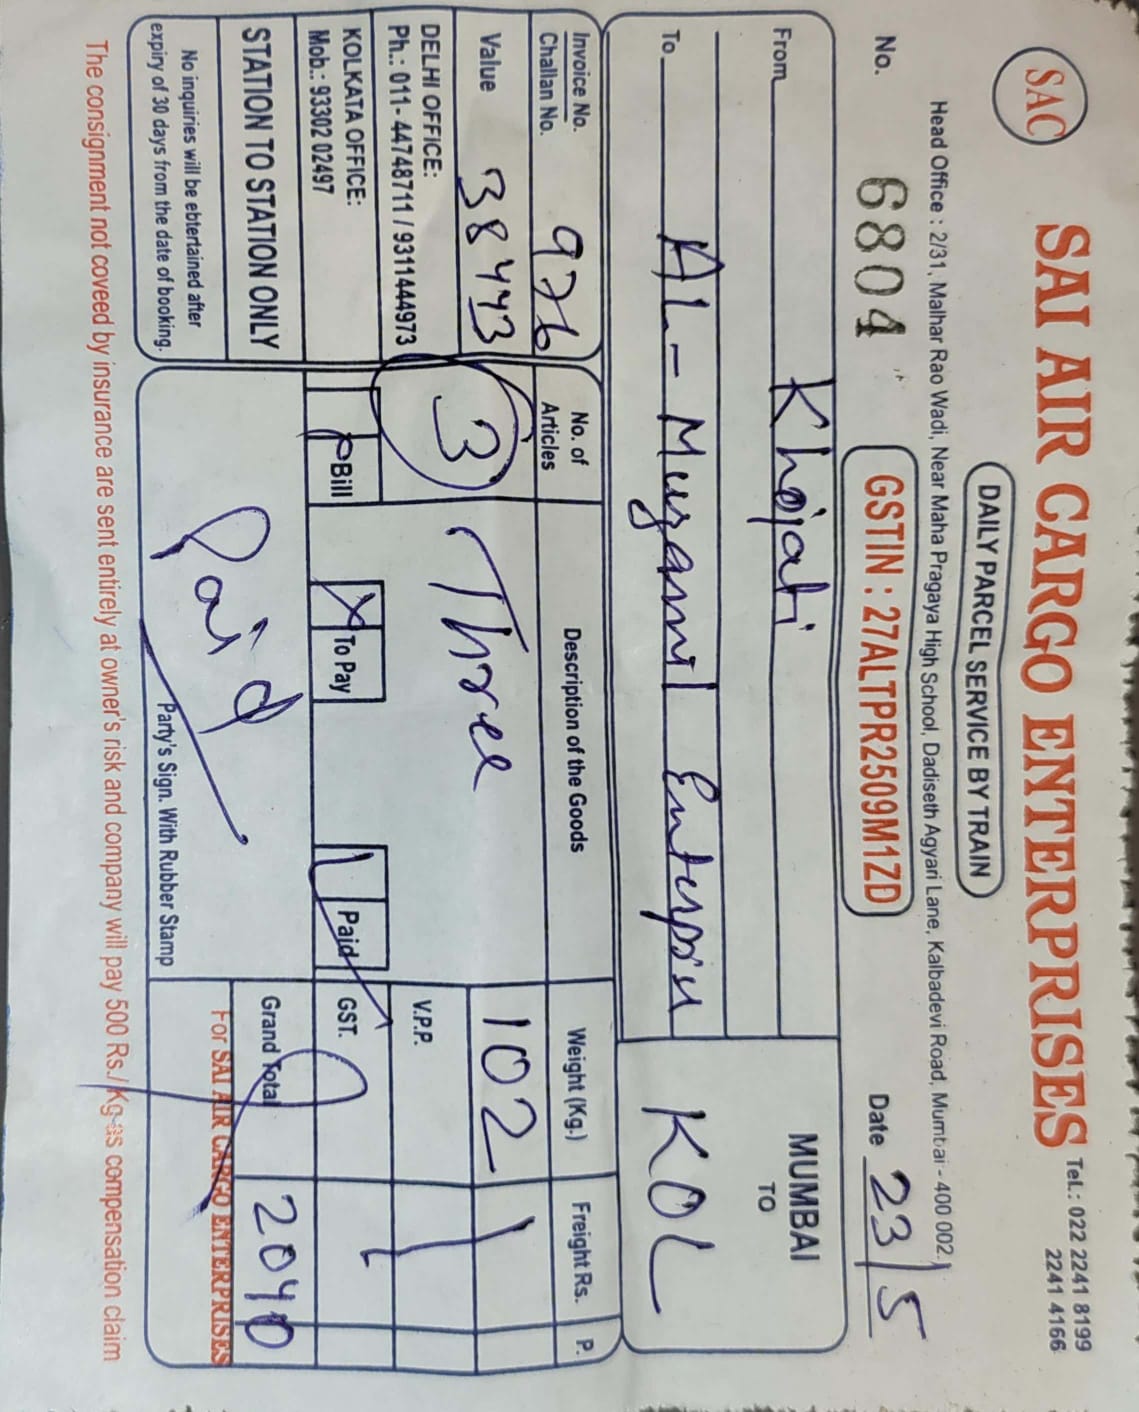 SAC
SAI AIR CARGO ENTERPRISES
Tel.: 022 2241 8199
2241 4166
DAILY PARCEL SERVICE BY TRAIN
Head Office : 2/31, Malhar Rao Wadi, Near Maha Pragaya High School, Dadiseth Agyari Lane, Kalbadevi Road, Mumbai - 400 002.
No. 6804
GSTIN : 27ALTPR2509M1ZD
Date 23/5
From Khojati
MUMBAI
TO
KOL
To AL-Muzammil
Invoice No.
Challan No. 976
No. of
Articles
Description of the Goods
Weight (Kg.)
Freight Rs.
P.
Value 38443
3
Three
102
DELHI OFFICE:
Ph.: 011- 44748711 / 9311444973
V.P.P.
KOLKATA OFFICE:
Mob.: 93302 02497
Bill
To Pay
Paid
GST.
STATION TO STATION ONLY
Paid
Grand Total
2040
No inquiries will be ebtertained after
expiry of 30 days from the date of booking.
Party's Sign. With Rubber Stamp
For SAI AIR CARGO ENTERPRISES
The consignment not coveed by insurance are sent entirely at owner's risk and company will pay 500 Rs./Kg as compensation claim